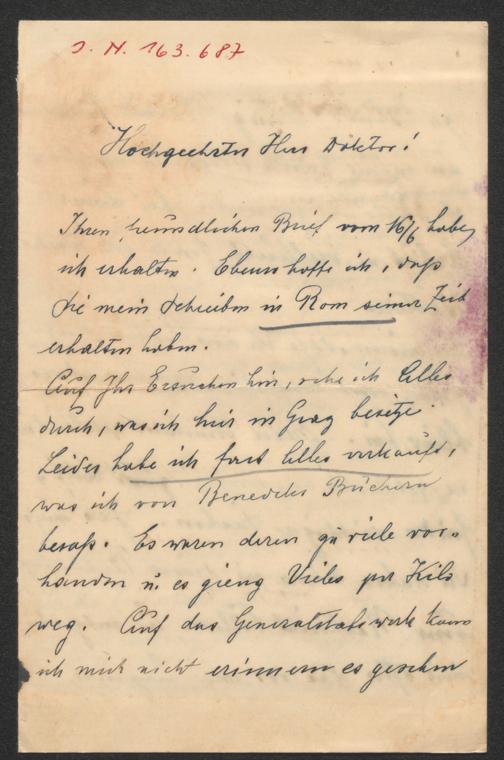 J. N. 163.687
Hochgeehrter Herr Doktor!
Ihren freundlichen Brief vom 16/6 habe
ich erhalten. Ebenso hoffe ich, daß
Sie mein Schreiben in Rom seiner Zeit
erhalten haben.
Auf Ihr Ersuchen hin, sehe ich Alles
durch, was ich hier in Graz besitze.
Leider habe ich fast Alles verkauft,
was ich von Benedeks Büchern
besaß. Es waren deren zu viele vor-
handen u. es gieng Vieles per Kilo
weg. Auf das Generalstabswerk kann
ich mich nicht erinnern es gesehen